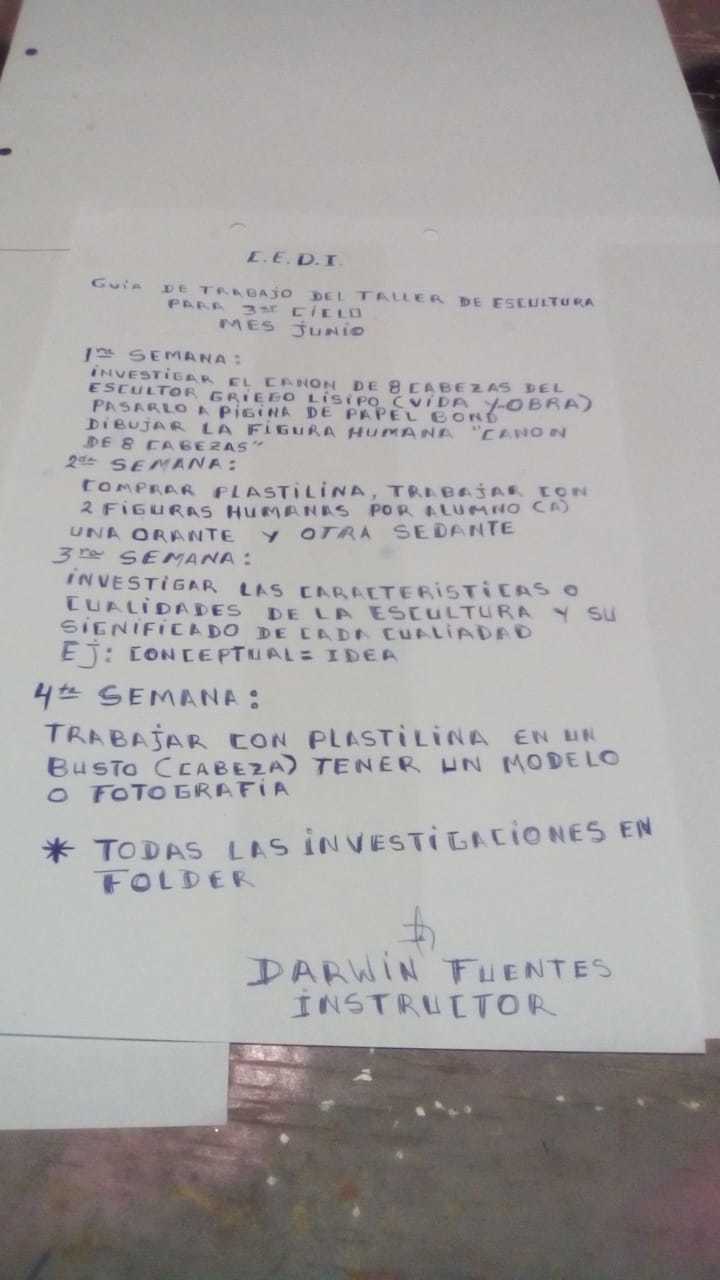 C.E.D.I.
GUiA DE TRABAJO DEL TALLER DE ESCULTURA
PARA 3er CiCLO
MES JUNiO
1ra SEMANA:
iNVESTiGAR EL CANON DE 8 CABEZAS DEL
ESCULTOR GRiEGO LiSiPO (ViDA Y OBRA)
PASARLO A PiGiNA DE PAPEL BOND
DiBUJAR LA FiGURA HUMANA "CANON
DE 8 CABEZAS"
2da SEMANA:
COMPRAR PLASTiLiNA, TRABAJAR CON
2 FiGURAS HUMANAS POR ALUMNO (A)
UNA ORANTE Y OTRA SEDANTE
3ra SEMANA:
iNVESTiGAR LAS CARACTERiSTiCAS O
CUALiDADES DE LA ESCULTURA Y SU
SiGNiFiCADO DE CADA CUALiADAD
Ej: CONCEPTUAL = IDEA
4ta SEMANA:
TRABAJAR CON PLASTiLiNA EN UN
BUSTO (CABEZA) TENER UN MODELO
O FOTOGRAFiA
* TODAS LAS iNVESTiGACiONES EN
FOLDER
DARWiN FUENTES
iNSTRUCTOR